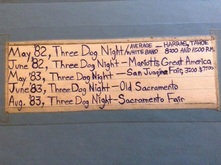 May '82, Three Dog Night/AVERAGE WHITE BAND - HARRAHS, TAHOE 8:00 AND 11:00 P.M.
June '82, Three Dog Night - Marriott's Great America
May '83, Three Dog Night - San Joaquin Fair,
June '83, Three Dog Night - Old Sacramento
Aug. '83, Three Dog Night - Sacramento Fair